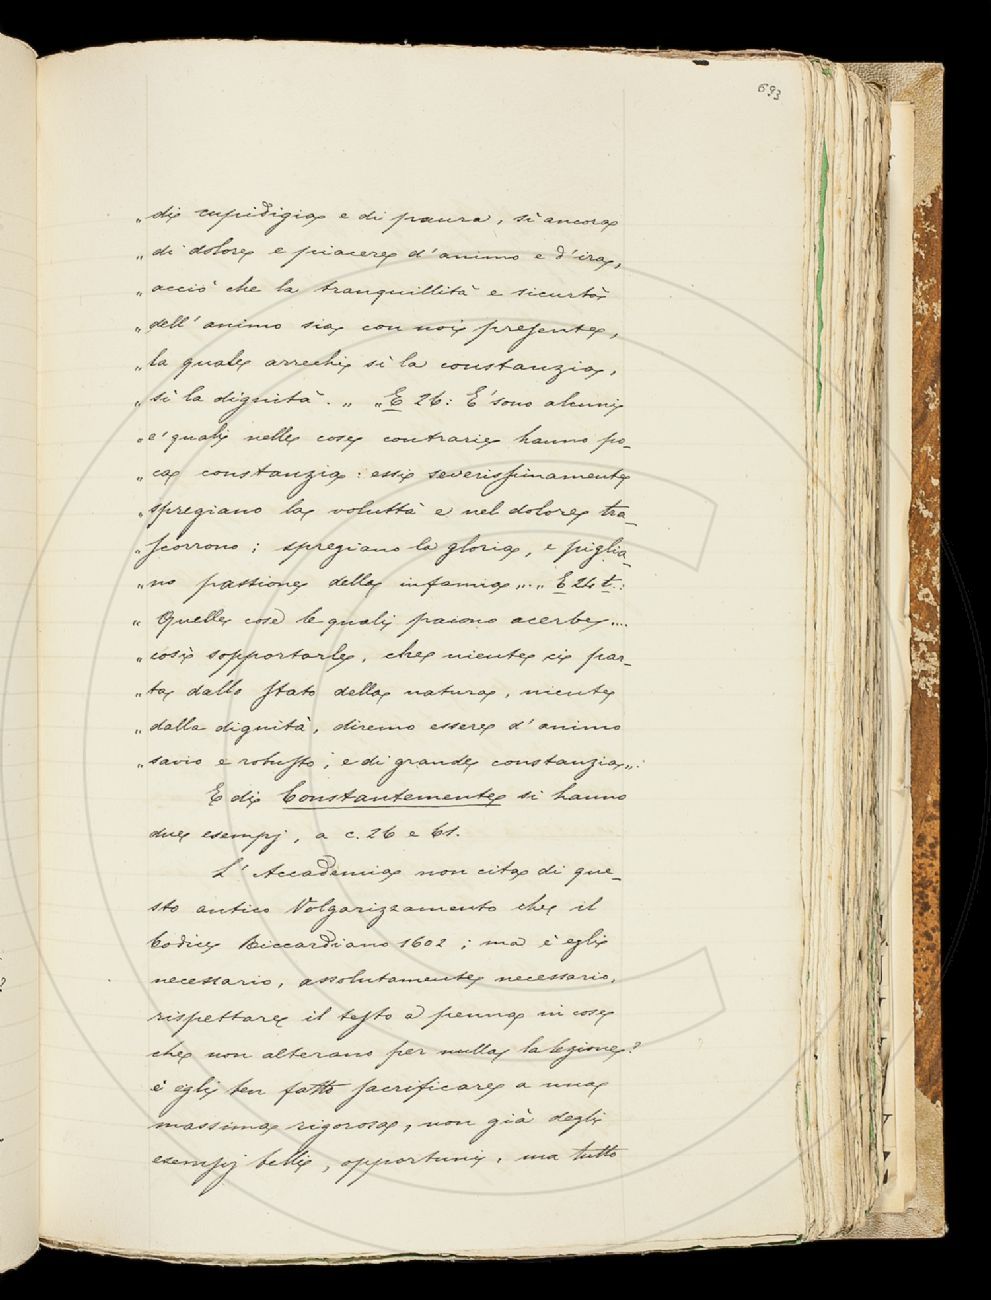 693
„ di cupidigia e di paura, sì ancora
„ di dolore e piacere d'animo e d'ira,
„ acciò che la tranquillità e sicurtà
„ dell'animo sia con noi presente,
„ la quale arrechi sì la constanzia,
„ sì la dignità. „ „ E 26: E' sono alcuni
„ e' quali nelle cose contrarie hanno po-
„ ca constanzia: essi severissimamente
„ spregiano la voluttà e nel dolore tra-
„ scorrono; spregiano la gloria, e piglia-
„ no passione della infamia „. „ E 24 t.:
„ Quelle cose le quali paiono acerbe....
„ così sopportarle, che niente si par-
„ ta dallo stato della natura, niente
„ dalla dignità, diremo essere d'animo
„ savio e robusto, e di grande constanzia „.
E di Constantemente si hanno
due esempj, a c. 26 e 61.
L'Accademia non cita di que-
sto antico Volgarizzamento che il
Codice Riccardiano 1602; ma è egli
necessario, assolutamente necessario,
rispettare il testo a penna in cose
che non alterano per nulla la lezione?
è egli ben fatto sacrificare a una
massima rigorosa, non già degli
esempj belli, opportuni, ma tutto